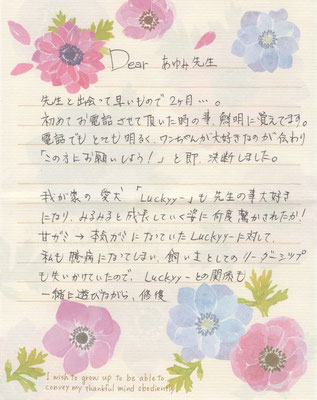 Dear あゆみ先生
先生と出会って早いもので2ヶ月…。
初めてお電話させて頂いた時の事、鮮明に覚えてます。
電話でもとっても明るく、ワンちゃんが大好きなのが伝わり
「この方にお願いしよう!」と即、決断しました。
我が家の愛犬「Luckyy-」も先生の事大好き
になり、みるみると成長していく姿に何度驚かされたか!
甘ガミ→本気ガミになっていたLuckyy-に対して、
私も臆病になってしまい、飼い主としてのリーダーシップ
も失いかけていたので、Luckyy-との関係も
一緒に遊びながら、修復
I wish to grow up to be able to
convey my thankful mind obediently.